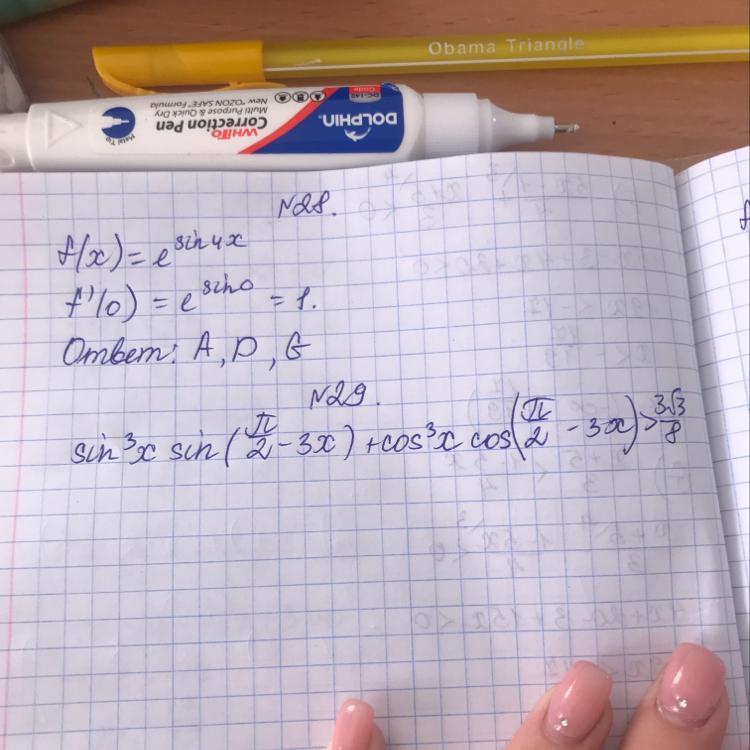 Obama Triangle
DOLPHIN
WHITO
Correction Pen
Multi Purpose & Quick Dry
New "OZON SAFE" Formula
Metal Tip
N28.
f(x) = e^sin4x
f'(0) = e^sin0 = 1.
Ответ: A, D, G
N29.
sin³x sin(π/2 - 3x) + cos³x cos(π/2 - 3x) > 3√3/8